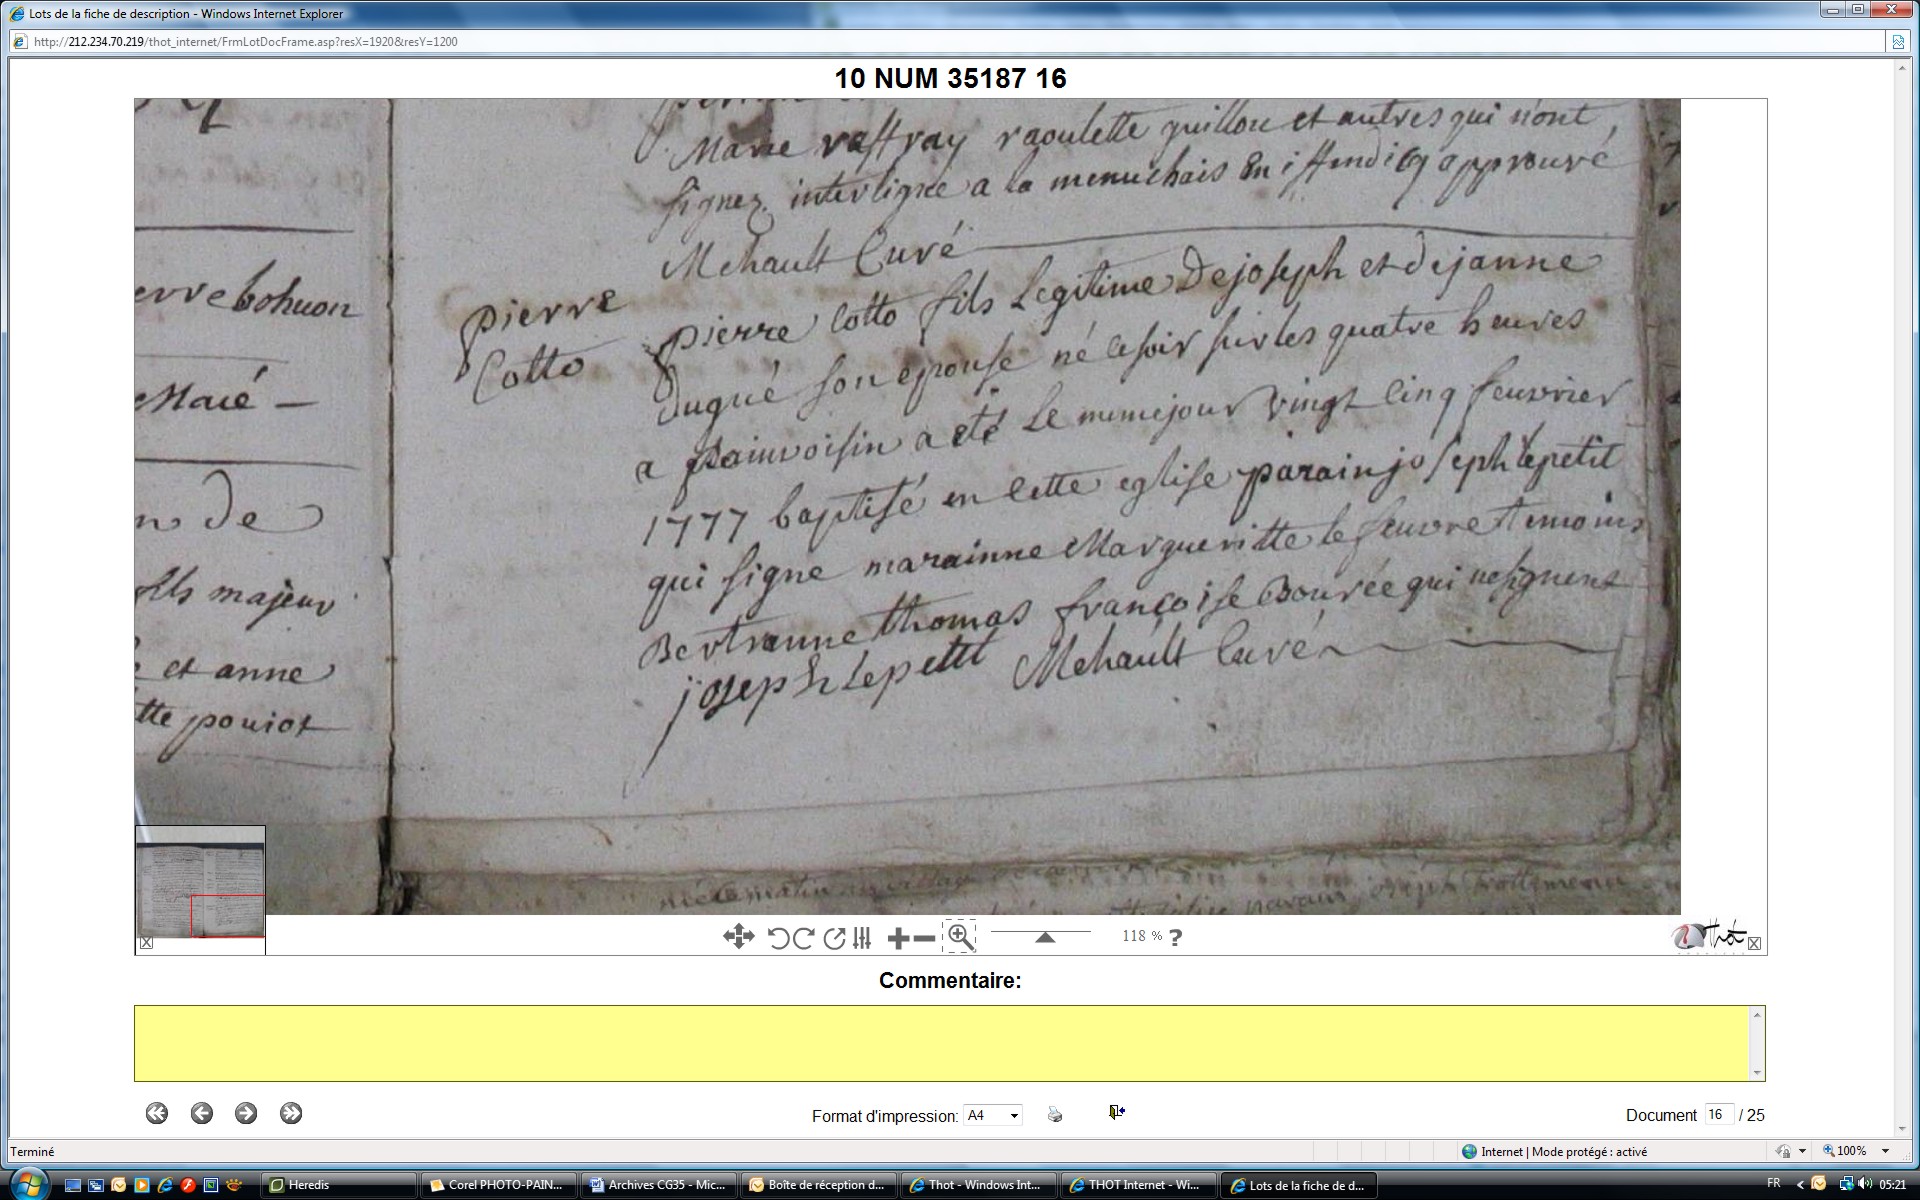 Lots de la fiche de description - Windows Internet Explorer
http://212.234.70.219/thot_internet/FrmLotDocFrame.asp?resX=1920&resY=1200
10 NUM 35187 16
Marie raffray raoulette guillou et autres qui n'ont
signez interligne a la menuchais En iffendicq approuvé
Mehault Curé
erre bohuon
Macé
n de
fils majeur
et anne
tte pouiot
pierre
Cotto
pierre Cotto fils Legitime De joseph et de janne
Dugué son epouse né ce soir sur les quatre heures
a painvoisin a eté Le meme jour vingt cinq feuvrier
1777 baptisé en cette eglise parain joseph lepetit
qui signe marainne Margueritte le feuvre temoins
Bertranne thomas françoise Bourée qui ne signent
joseph Lepetit Mehault Curé
118 %
?
Thot
Commentaire:
Format d'impression: A4
Document 16 / 25
Terminé
Internet | Mode protégé : activé
100%
Heredis
Corel PHOTO-PAIN...
Archives CG35 - Mic...
Boîte de réception d...
Thot - Windows Int...
THOT Internet - Wi...
Lots de la fiche de d...
FR
05:21